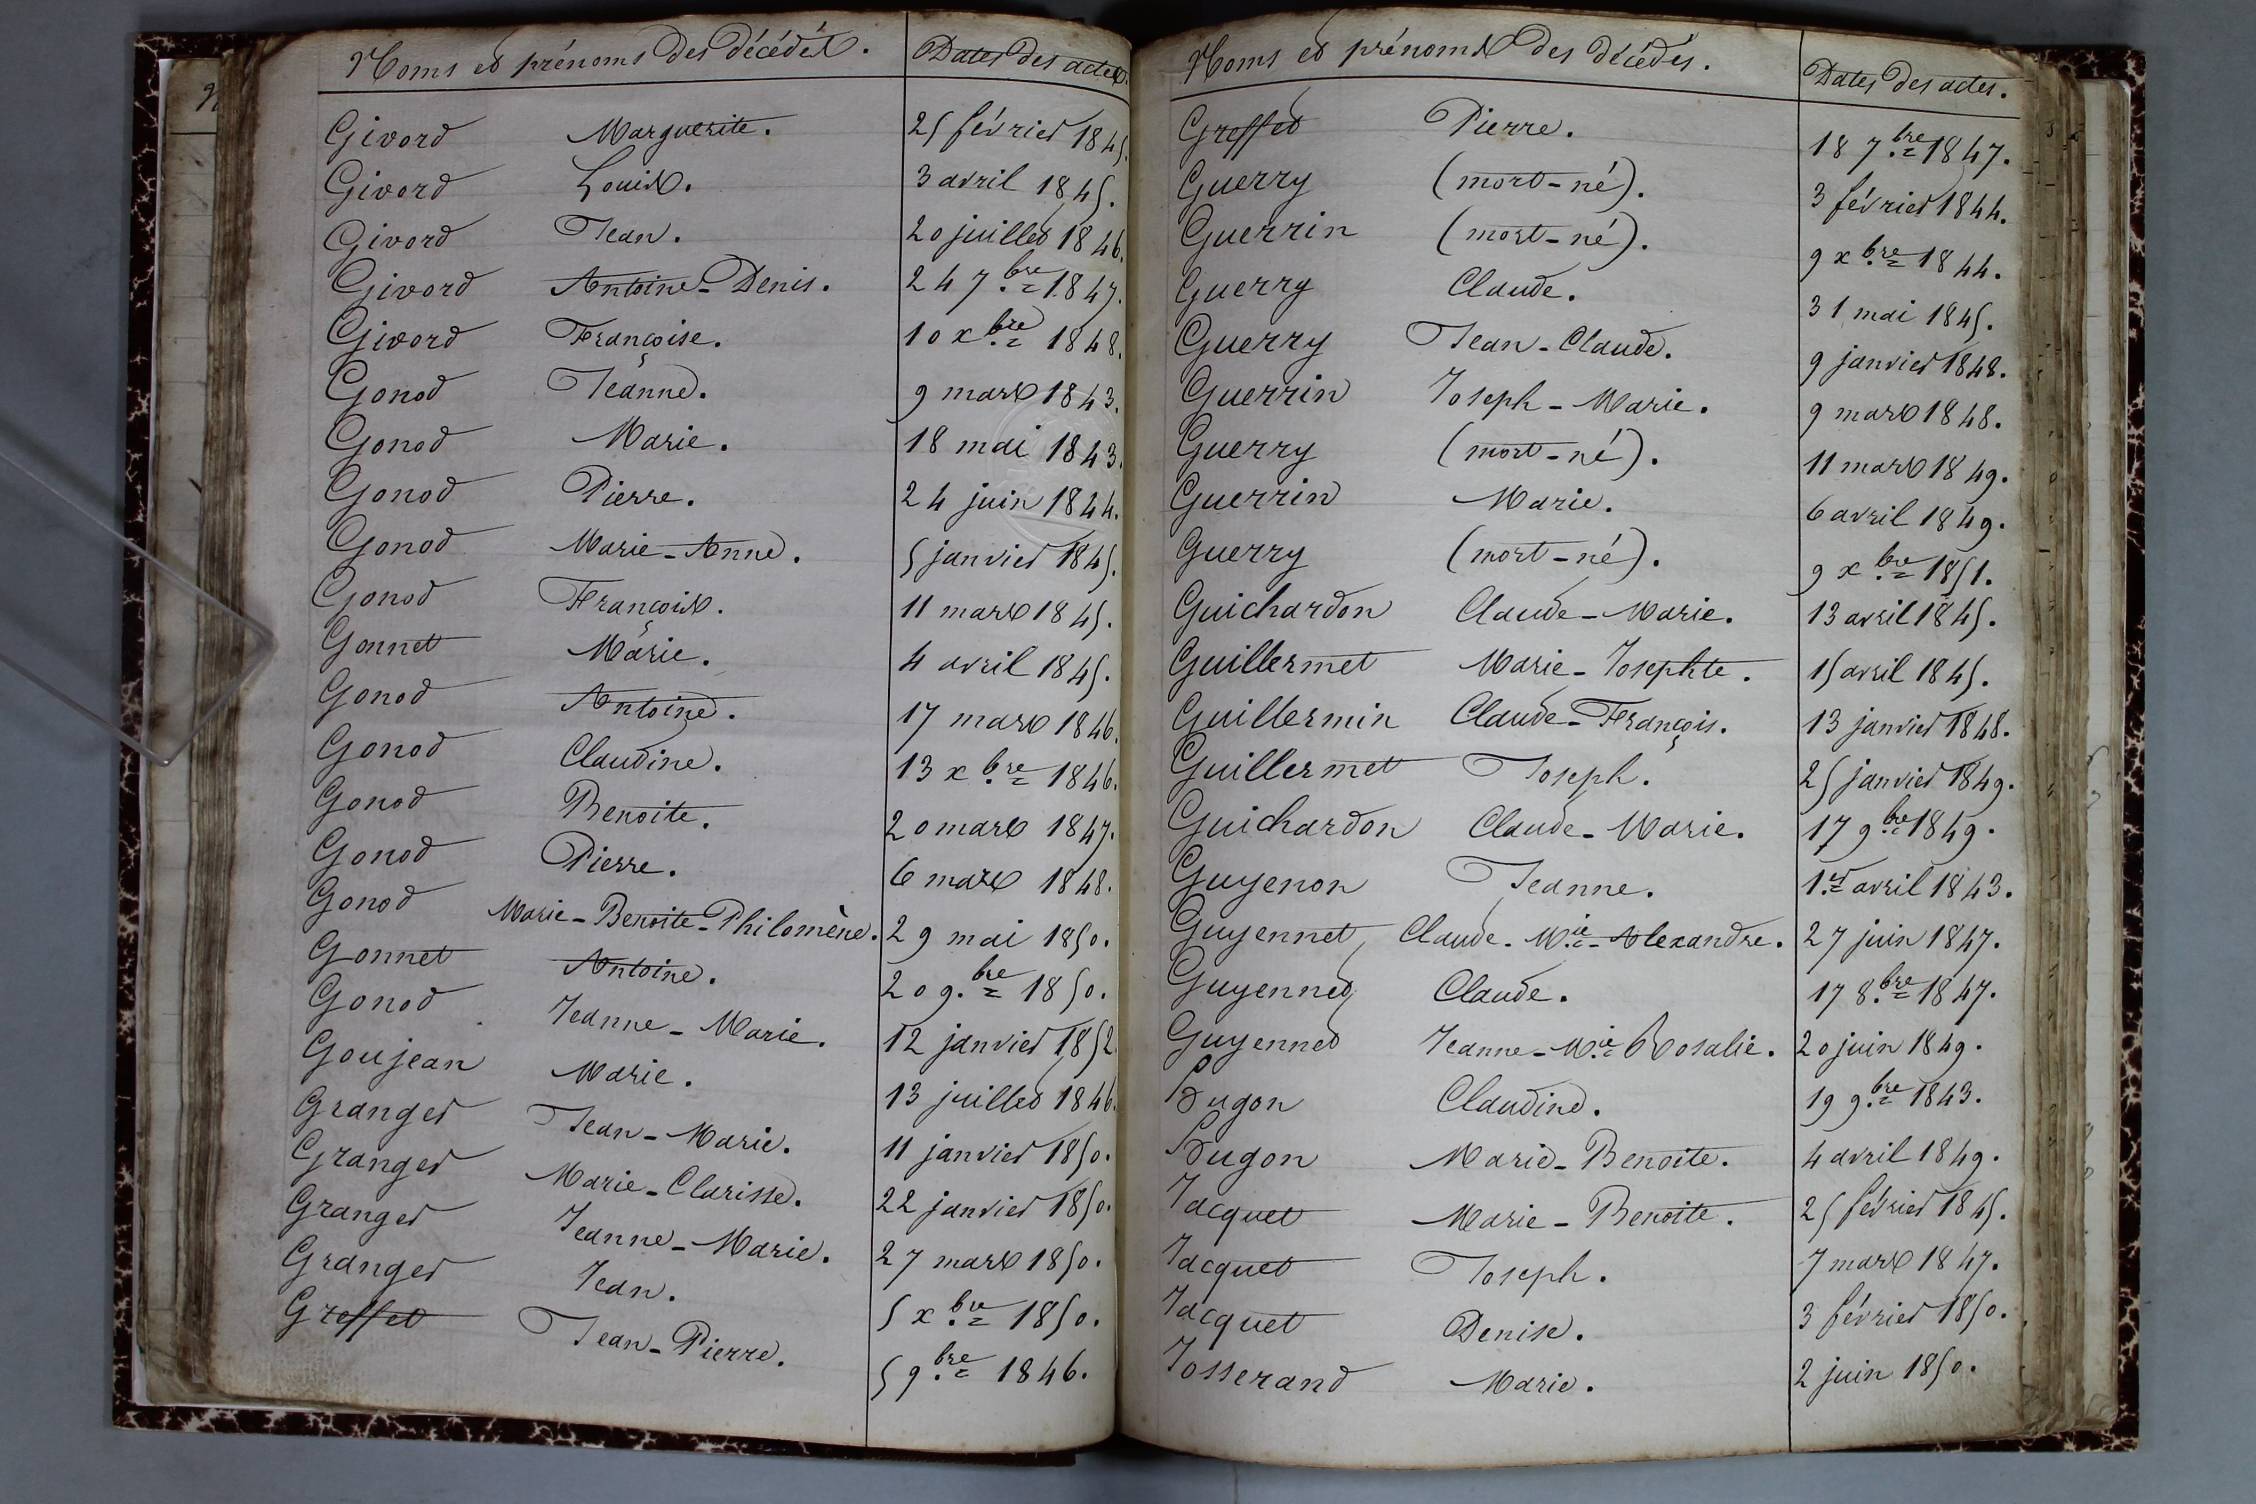 Noms et prénoms des décédés. Dates des actes.
Givord Marguerite. 25 février 1845.
Givord Louis. 3 avril 1845.
Givord Jean. 20 juillet 1846.
Givord Antoine-Denis. 24 7.bre 1847.
Givord Françoise. 10 x.bre 1848.
Gonod Jeanne. 9 mars 1843.
Gonod Marie. 18 mai 1843.
Gonod Pierre. 24 juin 1844.
Gonod Marie-Anne. 5 janvier 1845.
Gonod François. 11 mars 1845.
Gonnet Marie. 4 avril 1845.
Gonod Antoine. 17 mars 1846.
Gonod Claudine. 13 x.bre 1846.
Gonod Benoite. 20 mars 1847.
Gonod Pierre. 6 mars 1848.
Gonod Marie-Benoite-Philomène. 29 mai 1850.
Gonnet Antoine. 20 9.bre 1850.
Gonod Jeanne-Marie. 12 janvier 1852
Goujean Marie. 13 juillet 1846.
Granger Jean-Marie. 11 janvier 1850.
Granger Marie-Clarisse. 22 janvier 1850.
Granger Jeanne-Marie. 27 mars 1850.
Granger Jean. 5 x.bre 1850.
Greffet Jean-Pierre. 5 9.bre 1846.
Noms et prénoms des décédés. Dates des actes.
Greffet Pierre. 18 7.bre 1847.
Guerry (mort-né). 3 février 1844.
Guerrin (mort-né). 9 x.bre 1844.
Guerry Claude. 31 mai 1845.
Guerry Jean-Claude. 9 janvier 1848.
Guerrin Joseph-Marie. 9 mars 1848.
Guerry (mort-né). 11 mars 1849.
Guerrin Marie. 6 avril 1849.
Guerry (mort-né). 9 x.bre 1851.
Guichardon Claude-Marie. 13 avril 1845.
Guillermet Marie-Josephte. 15 avril 1845.
Guillermin Claude-François. 13 janvier 1848.
Guillermet Joseph. 25 janvier 1849.
Guichardon Claude-Marie. 17 9.bre 1849.
Guyenon Jeanne. 1.er avril 1843.
Guyennet Claude-M.ie-Alexandre. 27 juin 1847.
Guyennet Claude. 17 8.bre 1847.
Guyennet Jeanne-M.ie Rosalie. 20 juin 1849.
Hugon Claudine. 19 9.bre 1843.
Hugon Marie-Benoite. 4 avril 1849.
Jacquet Marie-Benoite. 25 février 1845.
Jacquet Joseph. 7 mars 1847.
Jacquet Denise. 3 février 1850.
Josserand Marie. 2 juin 1850.